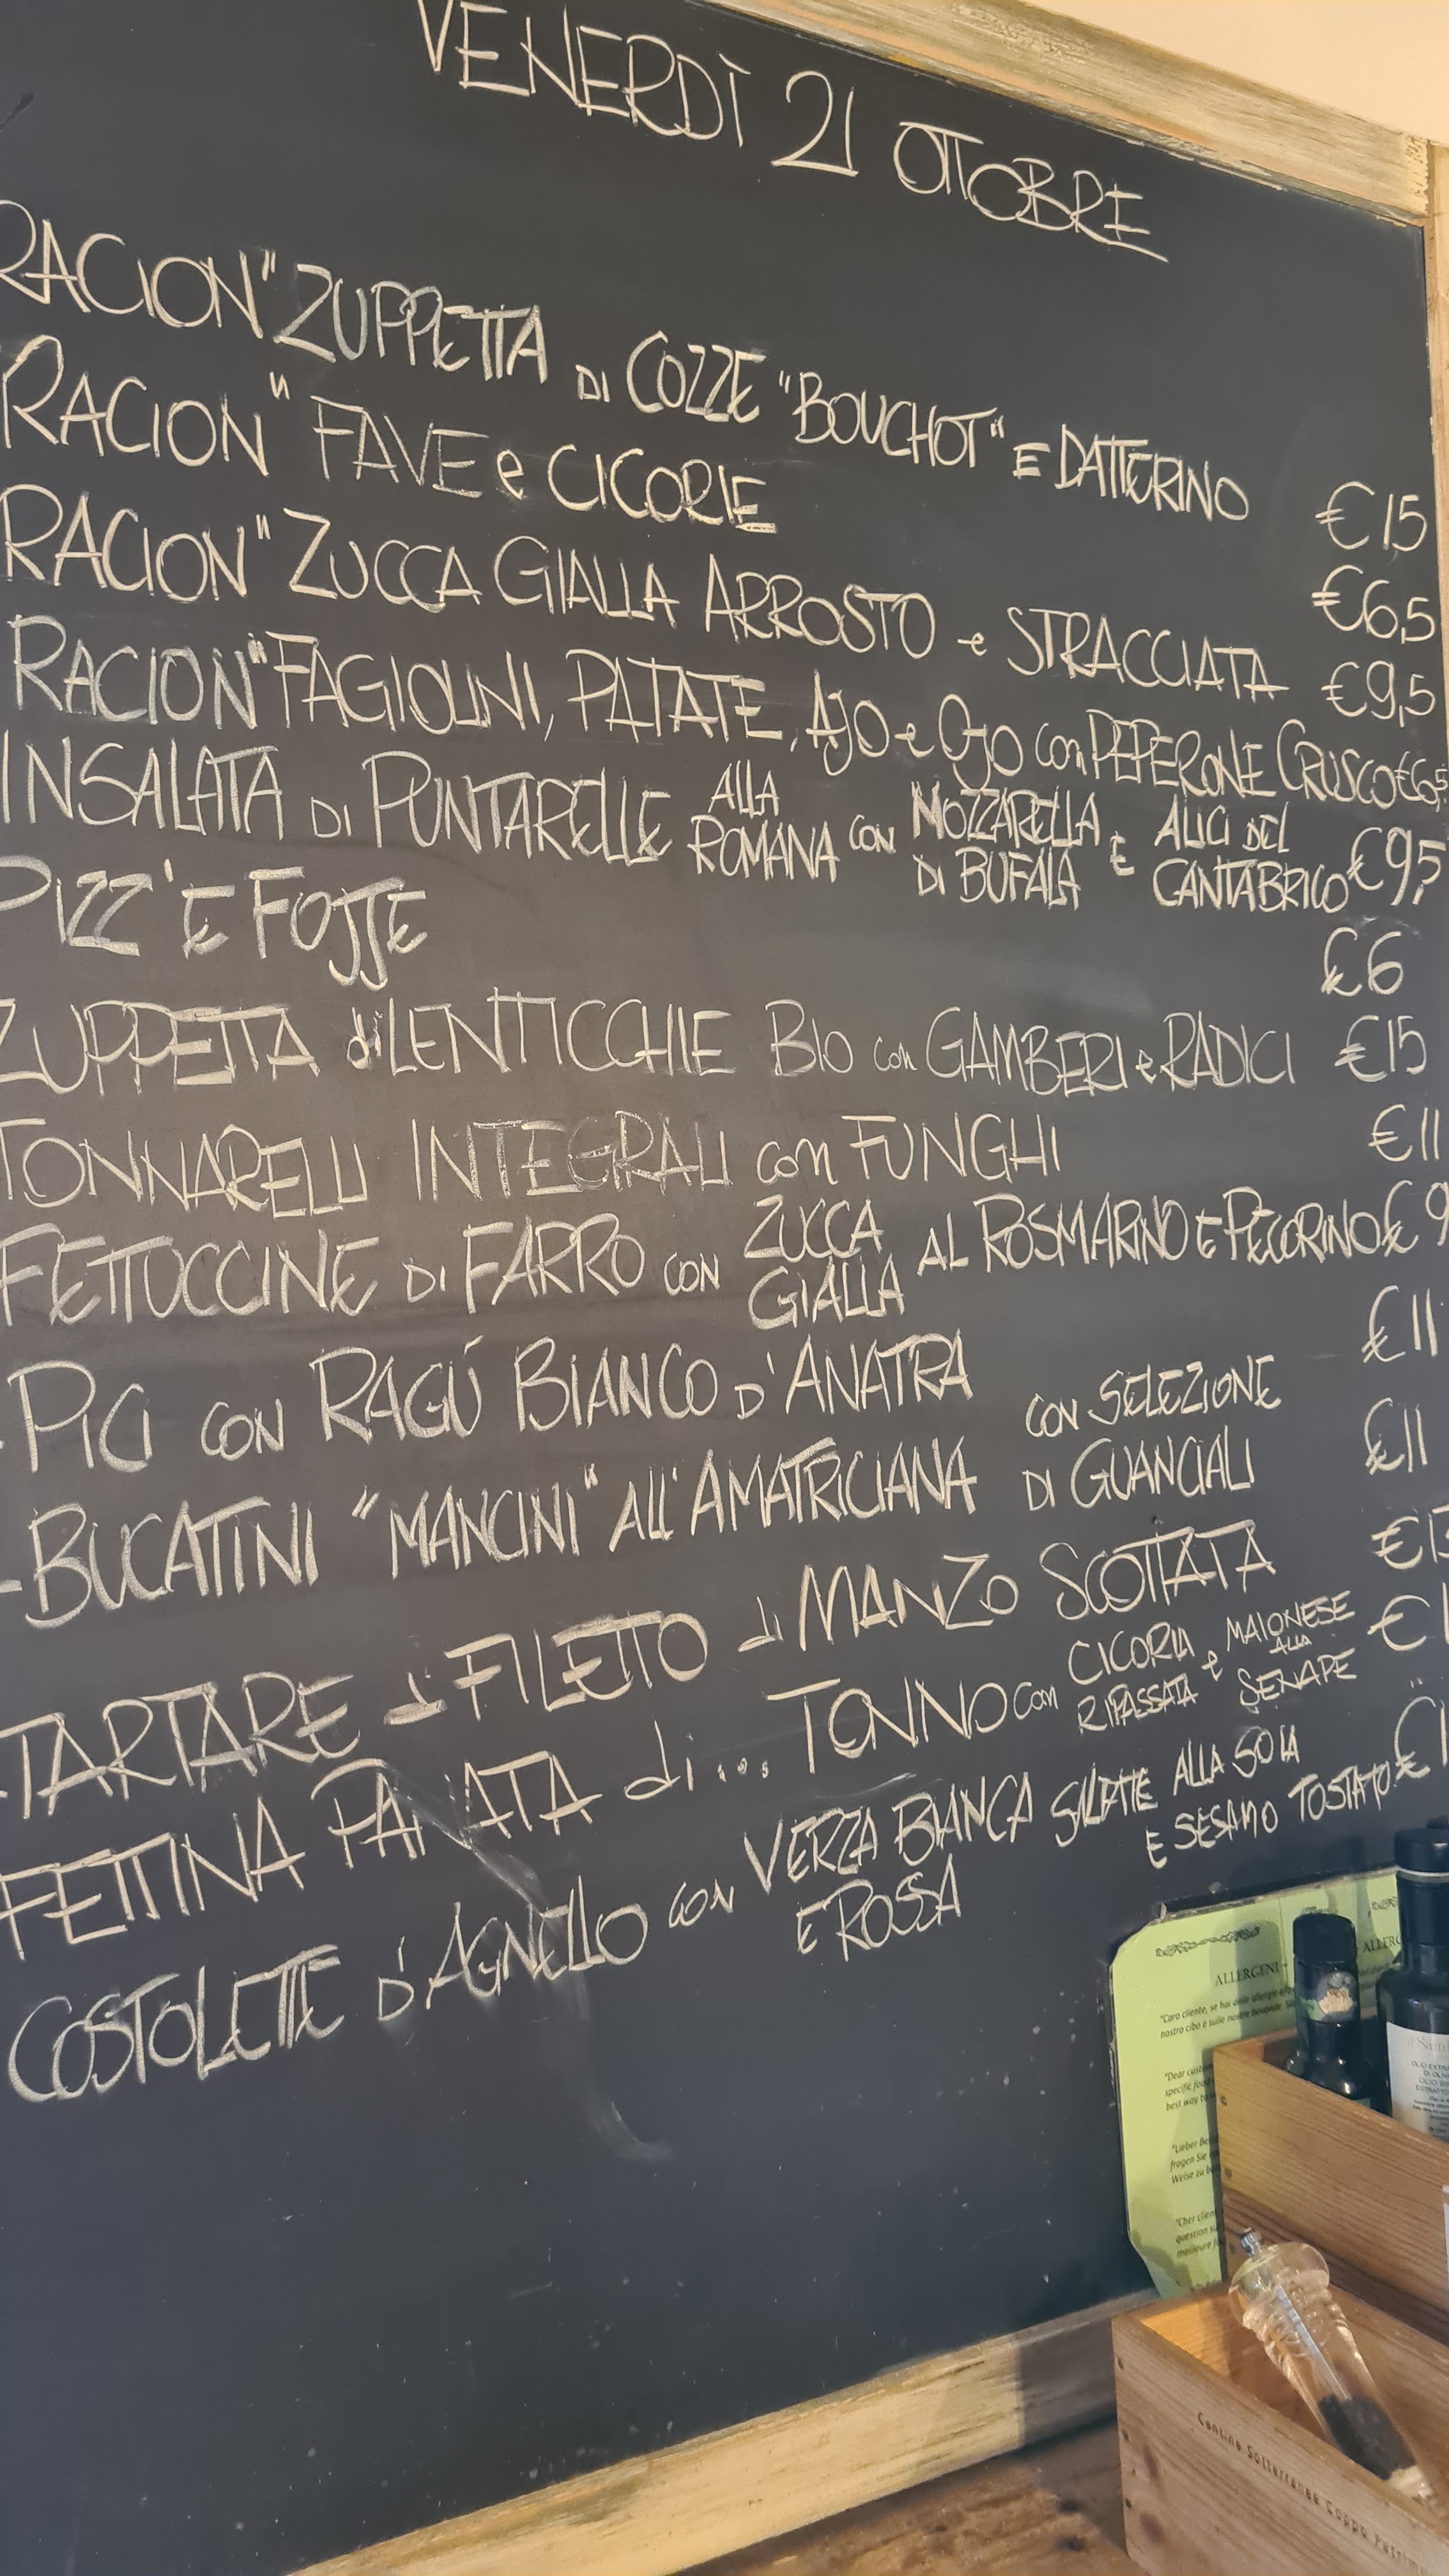 VENERDÌ 21 OTTOBRE
RACION" ZUPPETTA DI COZZE "BOUCHOT" E DATTERINO €15
RACION" FAVE e CICORIE €6,5
RACION" ZUCCA GIALLA ARROSTO e STRACCIATA €9,5
RACION" FAGIOLINI, PATATE, AJO e OJO con PEPERONE CRUSCO €6,5
INSALATA DI PUNTARELLE ALLA ROMANA CON MOZZARELLA DI BUFALA E ALICI DEL CANTABRICO €9,5
PIZZ'E FOJJE €6
ZUPPETTA di LENTICCHIE BIO con GAMBERI e RADICI €15
TONNARELLI INTEGRALI con FUNGHI €11
FETTUCCINE DI FARRO CON ZUCCA GIALLA AL ROSMARINO E PECORINO € 9
- PICI CON RAGÚ BIANCO D'ANATRA €11
- BUCATINI "MANCINI" ALL'AMATRICIANA CON SELEZIONE DI GUANCIALI €11
- TARTARE di FILETTO di MANZO SCOTTATA
FETTINA PANATA di... TONNO con CICORIA RIPASSATA e MAIONESE ALLA SENAPE
COSTOLETTE D'AGNELLO CON VERZA BIANCA E ROSSA SALTATE ALLA SOIA E SESAMO TOSTATO
ALLERGENI -
"Caro cliente, se hai delle allergie
nostro cibo e sulle nostre bevande.
"Dear
specific food
best way to
"Lieber
fragen Sie
Weise zu
"Cher client
question
meilleure
OLIO EXTRA
DI OLIVA
Cantine Sotterranee Coppo